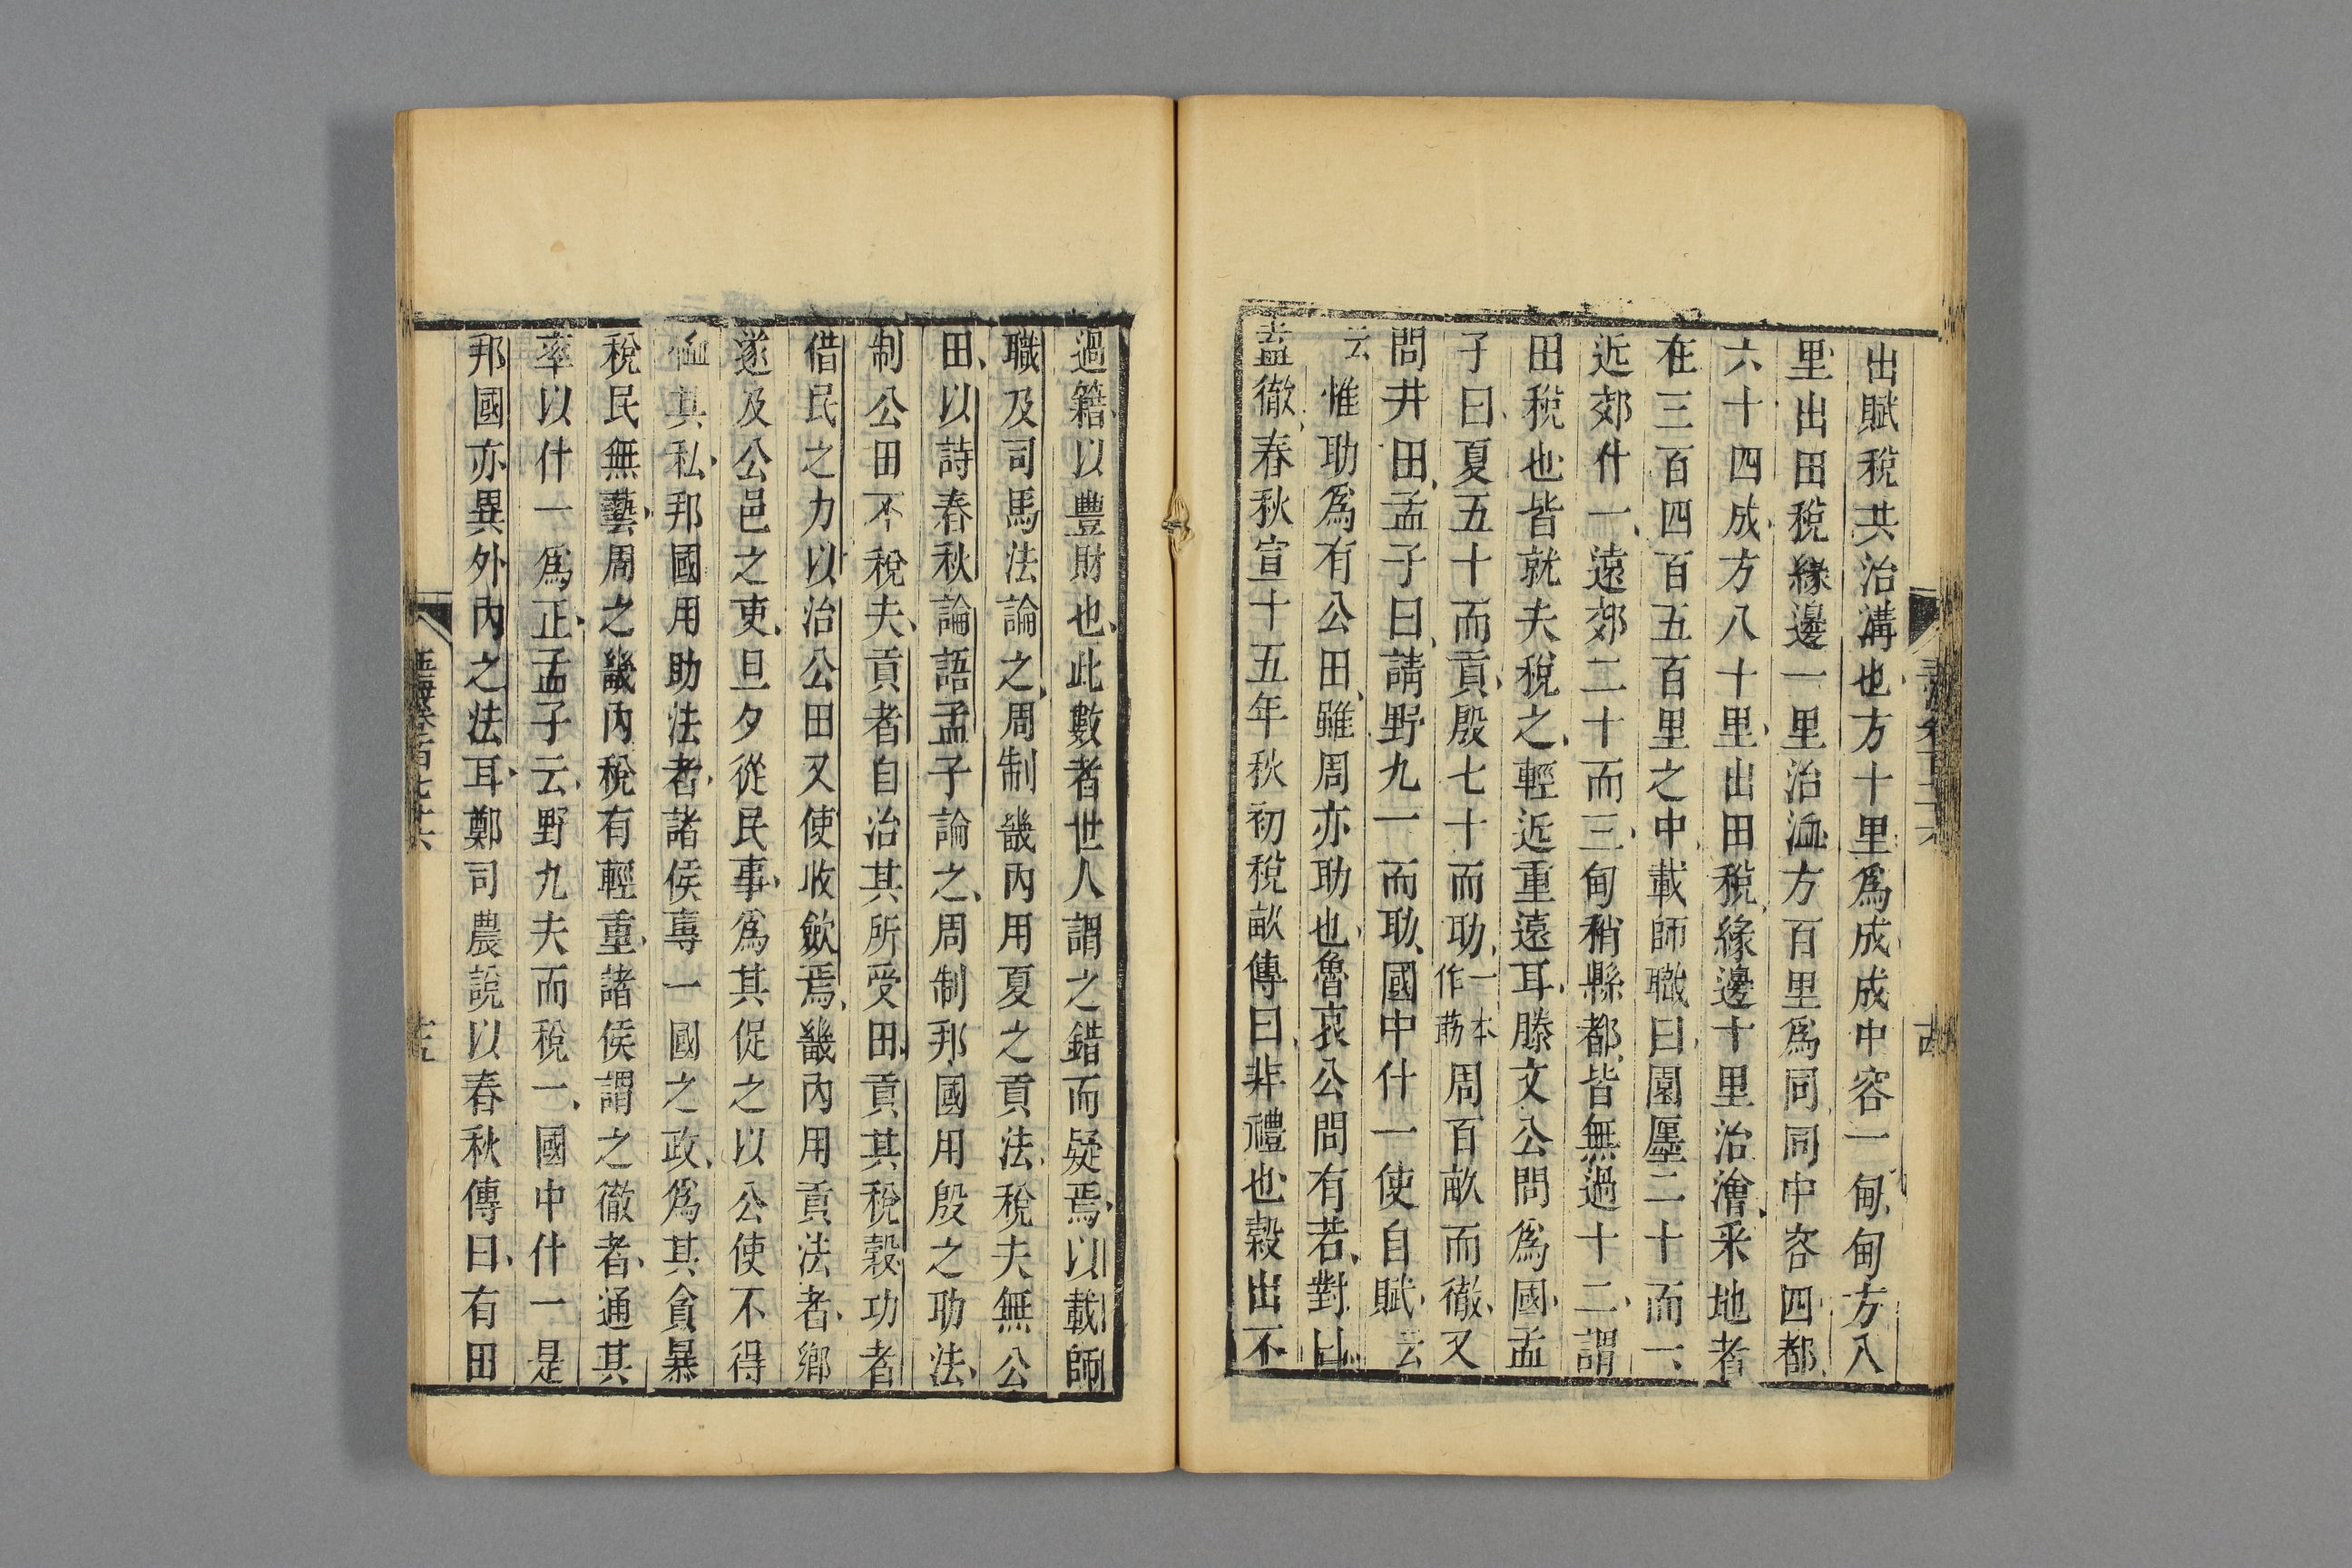 出賦稅共治溝也方十里爲成成中容一甸甸方八
里出田稅緣邊一里治洫方百里爲同同中容四都
六十四成方八十里出田稅緣邊十里治澮采地者
在三百四百五百里之中載師職曰園廛二十而一
近郊什一遠郊二十而三甸稍縣都皆無過十二謂
田稅也皆就夫稅之輕近重遠耳滕文公問爲國孟
子曰夏五十而貢殷七十而耡一本作莇周百畝而徹又
問井田孟子曰請野九一而耡國中什一使自賦云
云惟耡爲有公田雖周亦耡也魯哀公問有若對曰
盍徹春秋宣十五年秋初稅畝傳曰非禮也穀出不
過籍以豐財也此數者世人謂之錯而疑焉以載師
職及司馬法論之周制畿內用夏之貢法稅夫無公
田以詩春秋論語孟子論之周制邦國用殷之耡法
制公田不稅夫貢者自治其所受田貢其稅穀功者
借民之力以治公田又使收歛焉畿內用貢法者鄉
遂及公邑之吏旦夕從民事爲其促之以公使不得
恤其私邦國用助法者諸侯專一國之政爲其貪暴
稅民無藝周之畿內稅有輕重諸侯謂之徹者通其
率以什一爲正孟子云野九夫而稅一國中什一是
邦國亦異外內之法耳鄭司農說以春秋傳曰有田